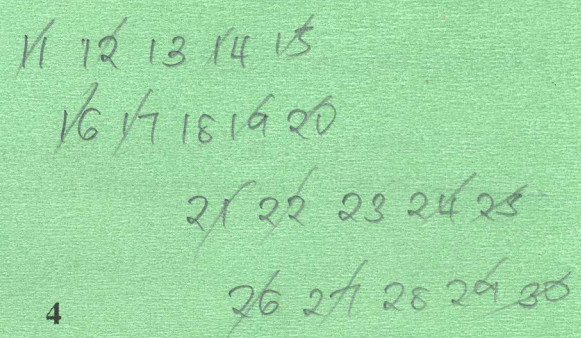 11 12 13 14 15
16 17 18 19 20
21 22 23 24 25
26 27 28 29 30
4